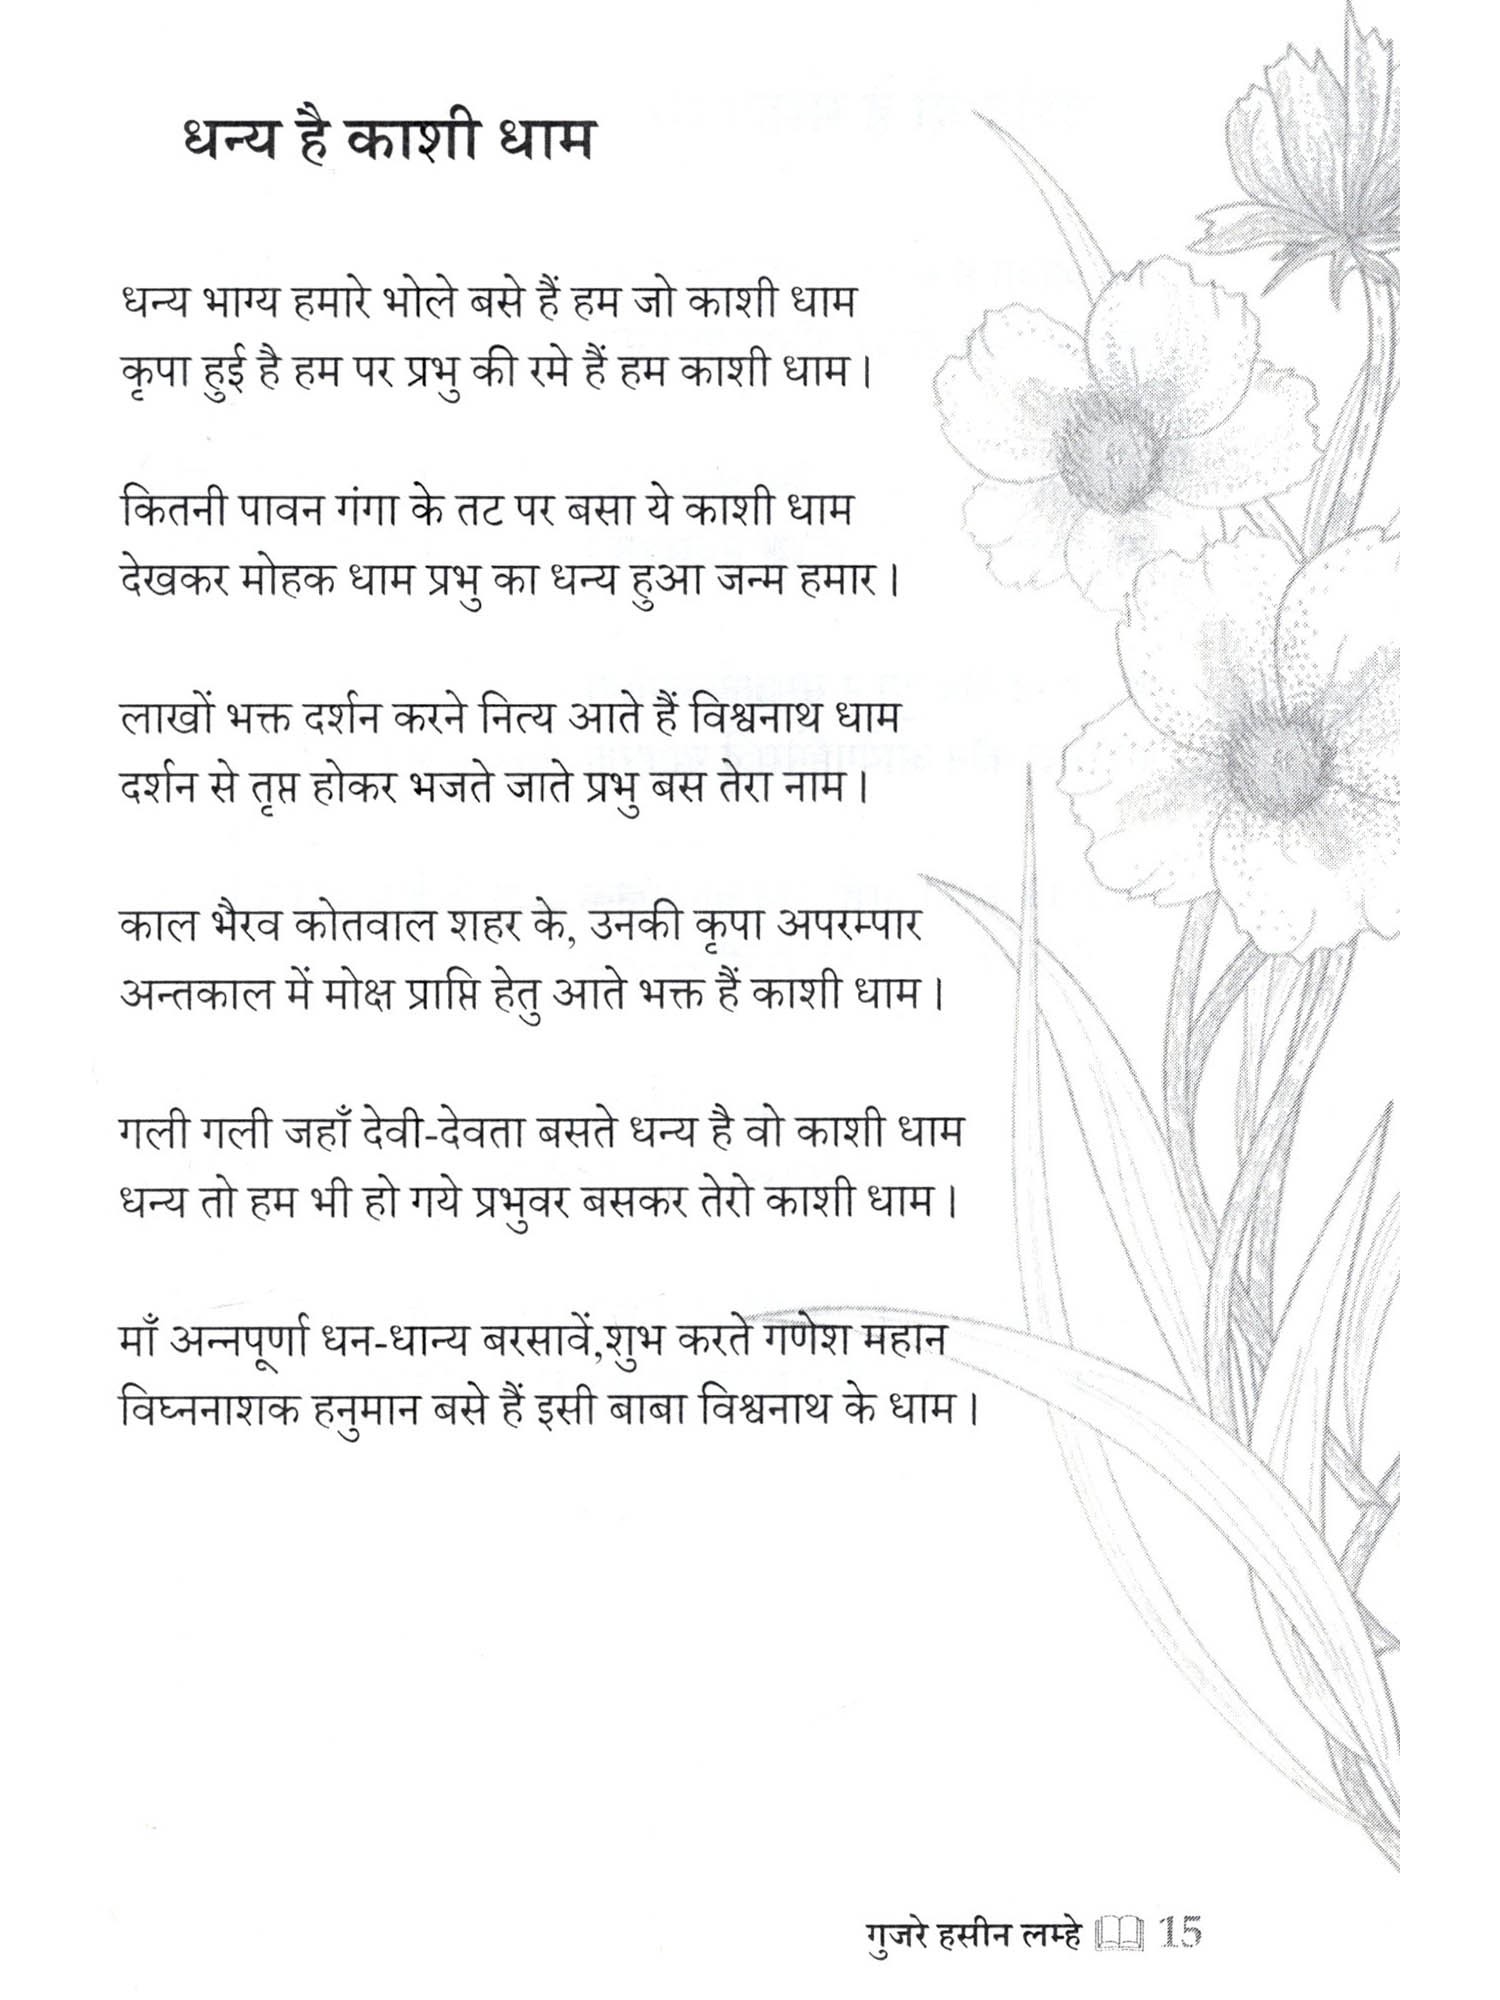 धन्य है काशी धाम
धन्य भाग्य हमारे भोले बसे हैं हम जो काशी धाम
कृपा हुई है हम पर प्रभु की रमे हैं हम काशी धाम।
कितनी पावन गंगा के तट पर बसा ये काशी धाम
देखकर मोहक धाम प्रभु का धन्य हुआ जन्म हमार।
लाखों भक्त दर्शन करने नित्य आते हैं विश्वनाथ धाम
दर्शन से तृप्त होकर भजते जाते प्रभु बस तेरा नाम।
काल भैरव कोतवाल शहर के, उनकी कृपा अपरम्पार
अन्तकाल में मोक्ष प्राप्ति हेतु आते भक्त हैं काशी धाम।
गली गली जहाँ देवी-देवता बसते धन्य है वो काशी धाम
धन्य तो हम भी हो गये प्रभुवर बसकर तेरो काशी धाम।
माँ अन्नपूर्णा धन-धान्य बरसावें,शुभ करते गणेश महान
विघ्ननाशक हनुमान बसे हैं इसी बाबा विश्वनाथ के धाम।
गुजरे हसीन लम्हे 15